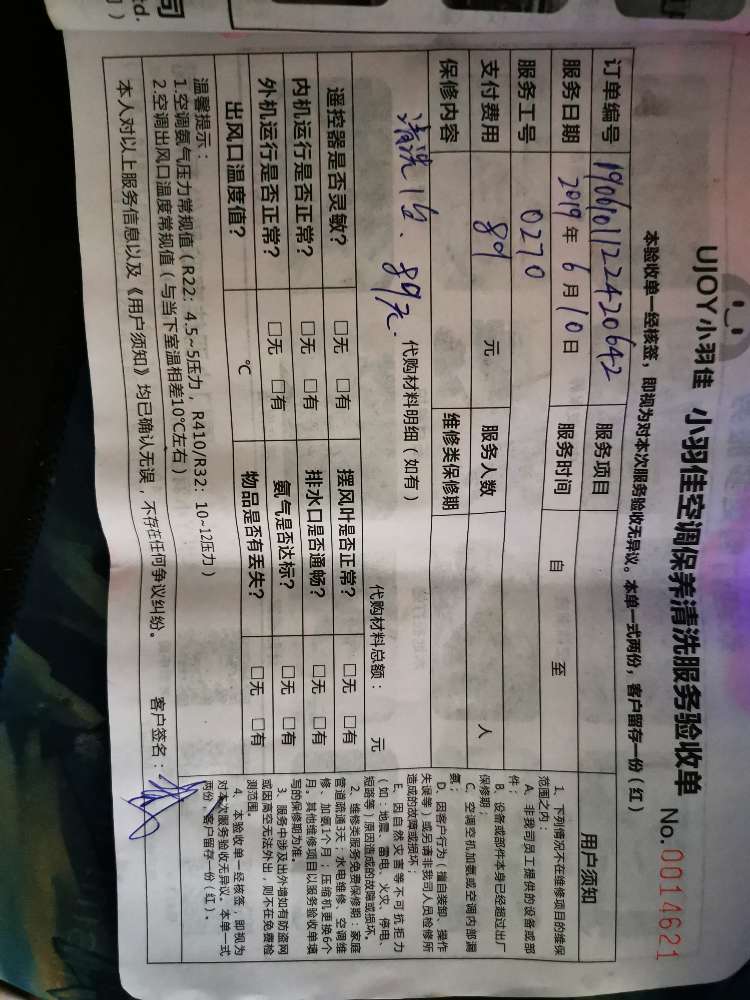 UJOY小羽佳 小羽佳空调保养清洗服务验收单 No.0014621
本验收单一经核签，即视为对本次服务验收无异议。本单一式两份，客户留存一份（红）
订单编号 1906101122420642 服务项目
服务日期 2019年6月10日 服务时间 自 至
服务工号 0270
支付费用 89 元 服务人数 人
保修内容 维修类保修期
清洗1台、89元.
代购材料明细（如有） 代购材料总额： 元
遥控器是否灵敏？ □无 □有 摆风叶是否正常？ □无 □有
内机运行是否正常？ □无 □有 排水口是否通畅？ □无 □有
外机运行是否正常？ □无 □有 氨气是否达标？ □无 □有
出风口温度值？ ℃ 物品是否有丢失？ □无 □有
温馨提示：
1.空调氨气压力常规值（R22：4.5~5压力，R410/R32：10~12压力）
2.空调出风口温度常规值（与当下室温相差10℃左右）
本人对以上服务信息以及《用户须知》均已确认无误，不存在任何争议纠纷。 客户签名：
用户须知
1、下列情况不在维修项目的维保
范围之内：
A、非我司员工提供的设备或部
件；
B、设备或部件本身已经超过出厂
保修期；
C、空调空机加氨或空调内部漏
氨；
D、因客户行为（擅自装卸、操作
失误等）或另请非我司人员检修所
造成的故障或损坏；
E、因自然灾害等不可抗拒力
（如：地震、雷电、火灾、停电、
短路等）原因造成的故障或损坏。
2、维修类服务免费保修期：家庭
管道疏通3天；水电维修、空调维
修、加氨1个月；压缩机更换6个
月，其他维修项目以服务验收单填
写的保修期为准。
3、服务中涉及出外墙如有防盗网
或因高空无法外出，则不在免费检
测范围。
4、本验收单一经核签，即视为
对本次服务验收无异议。本单一式
两份，客户留存一份（红）。
司
td.